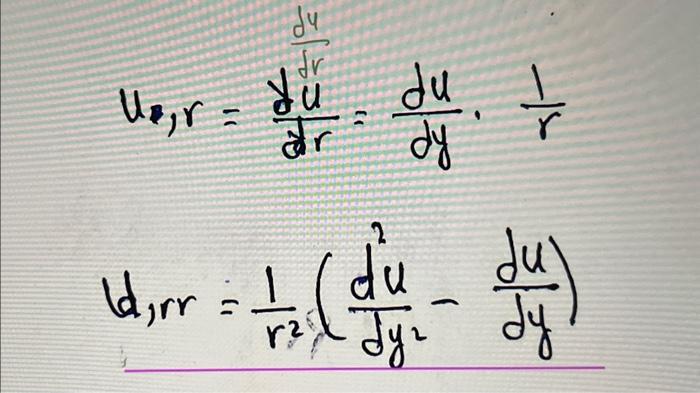 du/dr
u,r = du/dr = du/dy · 1/r
u,rr = 1/r² ( d²u/dy² - du/dy )